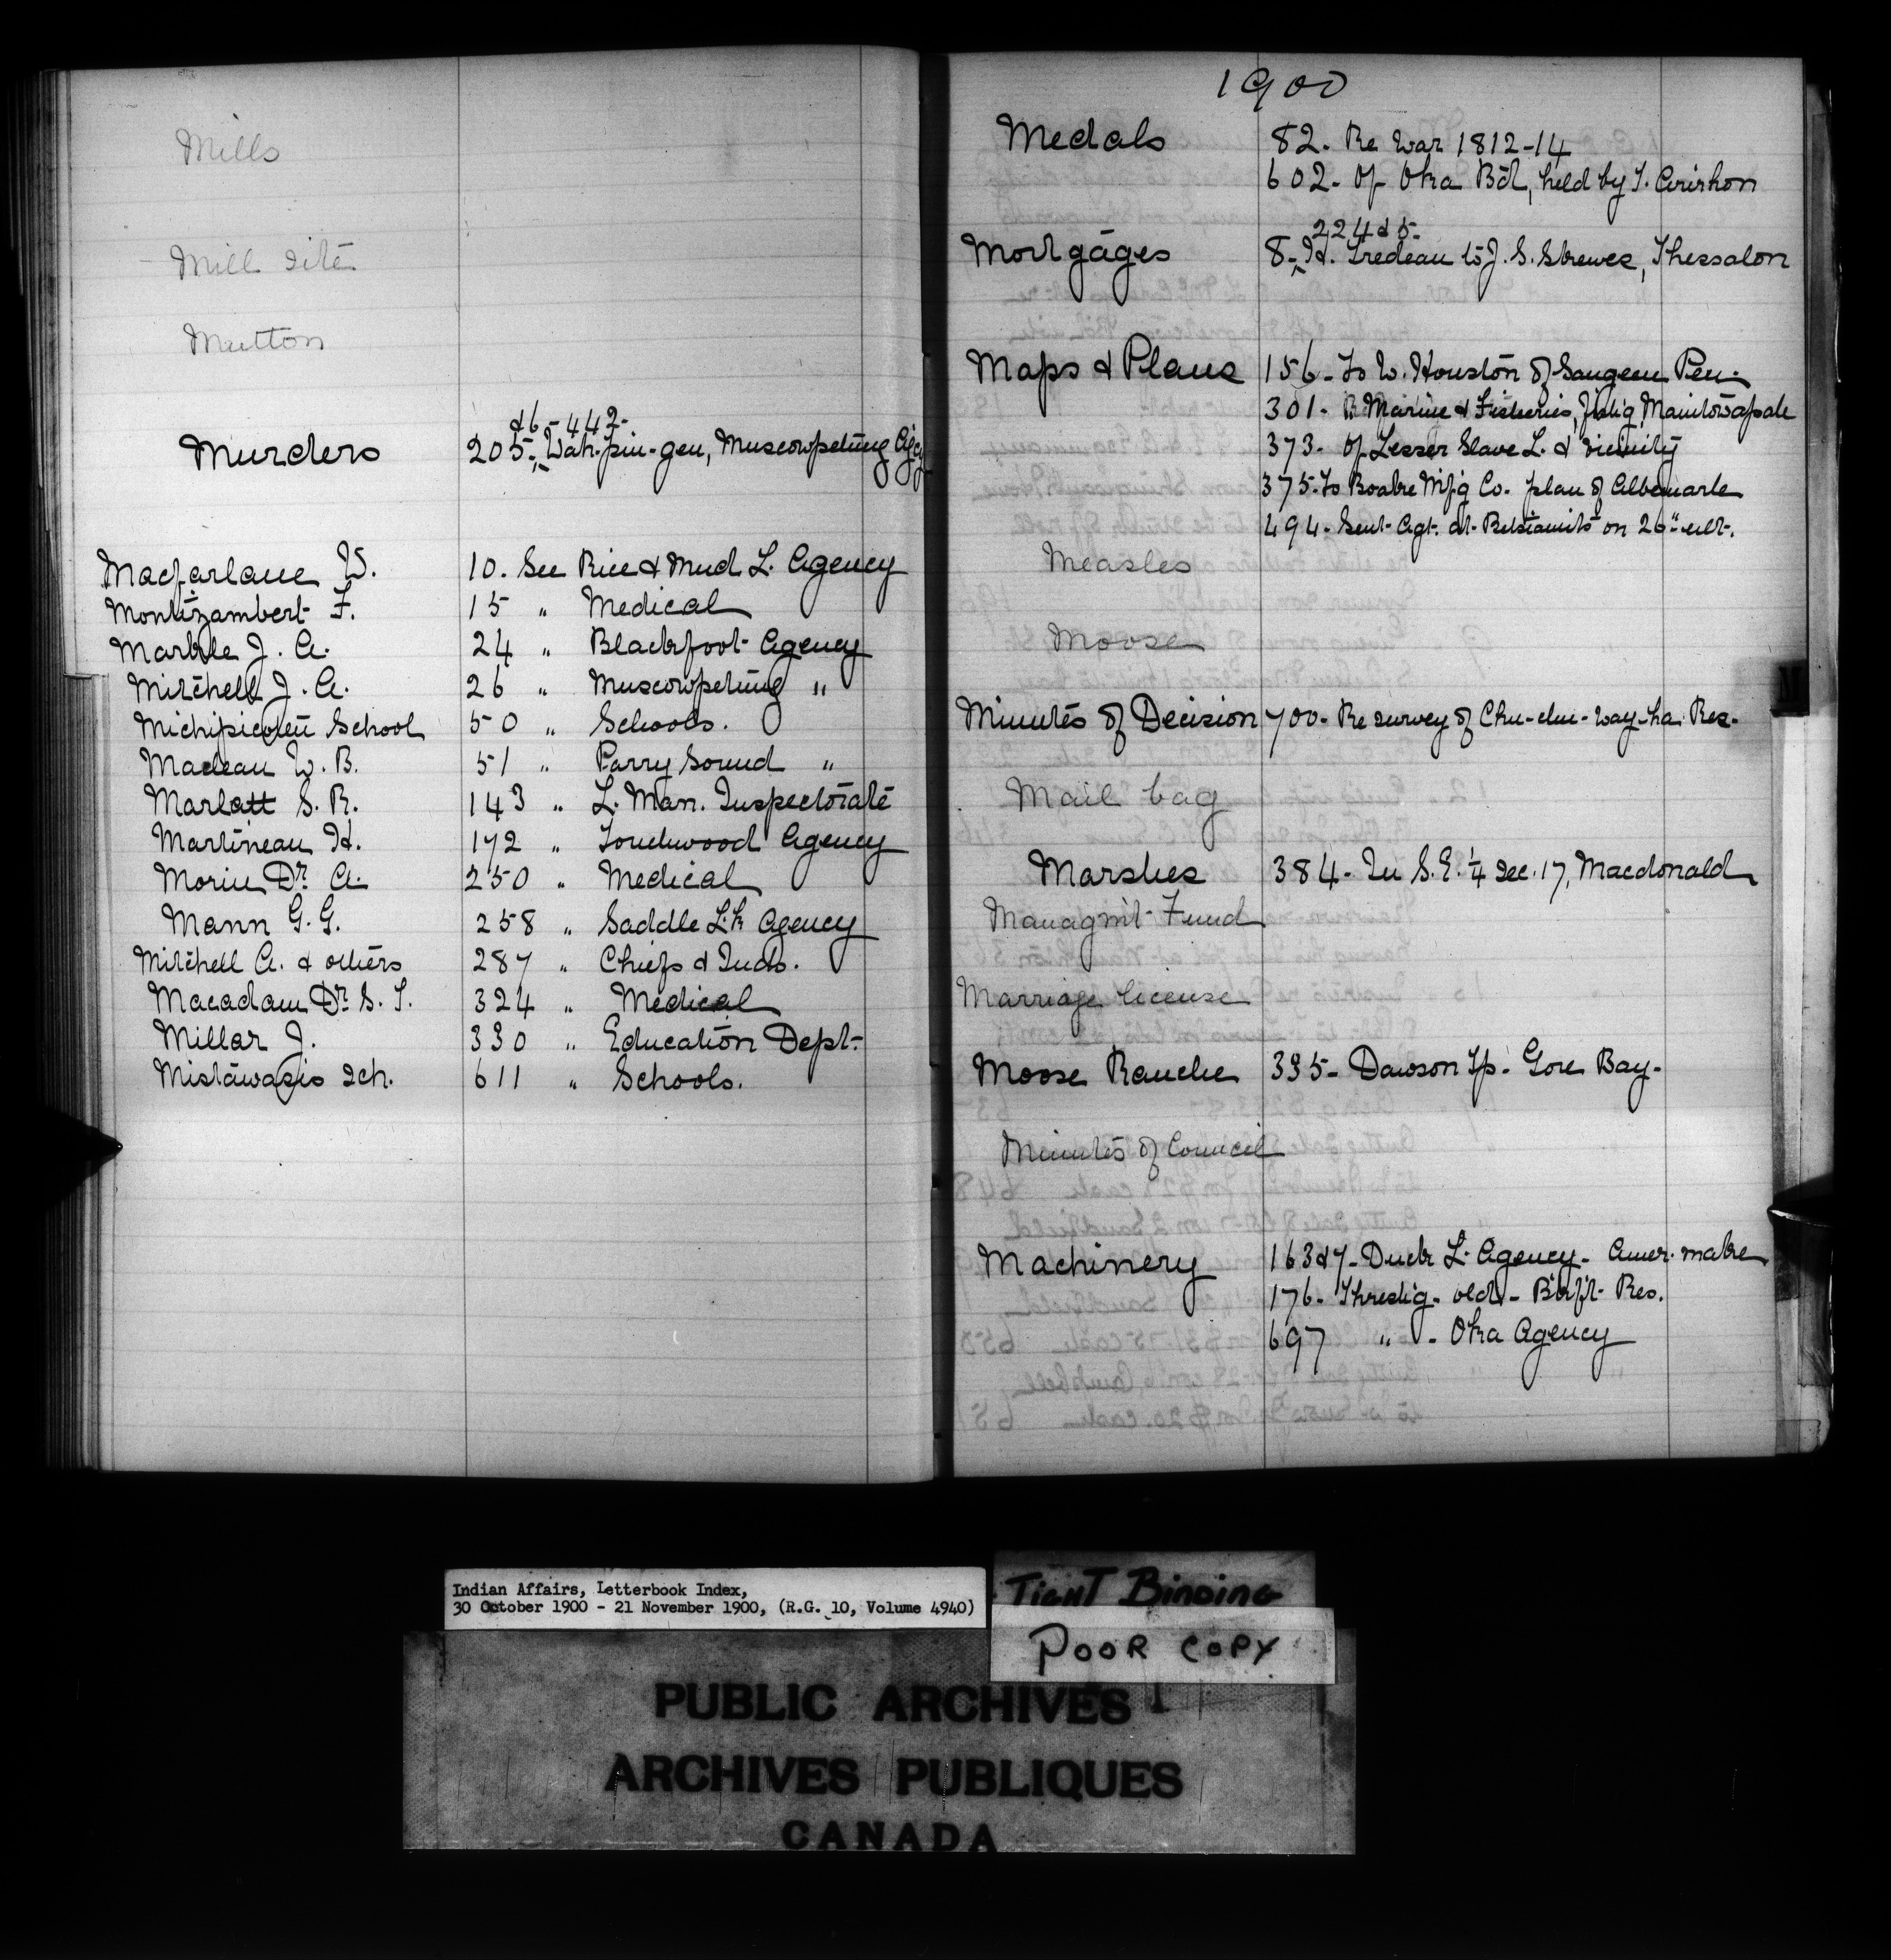 Mills
Mill site
Mutton
& 6 - 442-
Murders 205- Wah-pin-gen, Muscowpetung Agcy
Macfarlane W. 10. See Rice & Mud L. Agency
Montizambert F. 15 " Medical
Markle J. A. 24 " Blackfoot Agency
Mitchell J. A. 26 " Muscowpetung "
Michipicoten School 50 " Schools.
Maclean W. B. 51 " Parry Sound "
Marlatt S. R. 143 " L. Man. Inspectorate
Martineau H. 172 " Touchwood Agency
Morin Dr. A. 250 " Medical
Mann G. G. 258 " Saddle Lk Agency
Mitchell A. & others 287 " Chiefs & Inds.
Macadam Dr. S. T. 324 " Medical
Millar J. 330 " Education Dept.
Mistawasis sch. 611 " Schools.
1900
Medals 82- Re War 1812-14
602- Of Oka Bd, held by T.
224 & 5-
Mortgages 8- H. Tredeau to J. S. Strewes, Thessalon
Maps & Plans 156- To W. Houston of Saugeen Pen.
301- Marine & Fisheries, Manitowapah
373- Of Lesser Slave L. & vicinity
375- To Boake Mf'g Co. plan of Albemarle
494- Sent Agt. at Betsiamits on 26" ult.
Measles
Moose
Minutes of Decision 700- Re survey of Chu-chu-way-ha Res.
Mail bag
Marshes 384- In S.E. 1/4 sec. 17, Macdonald
Managmt Fund
Marriage license
Moose Ranche 335- Dawson Tp. Gore Bay-
Minutes of Council
Machinery 163 & 7- Duck L. Agency- Amer. make
176- Threshg- old- Res.
697 " - Oka Agency
M
Indian Affairs, Letterbook Index,
30 October 1900 - 21 November 1900, (R.G. 10, Volume 4940)
TIGHT BINDING
POOR COPY
PUBLIC ARCHIVES
ARCHIVES PUBLIQUES
CANADA